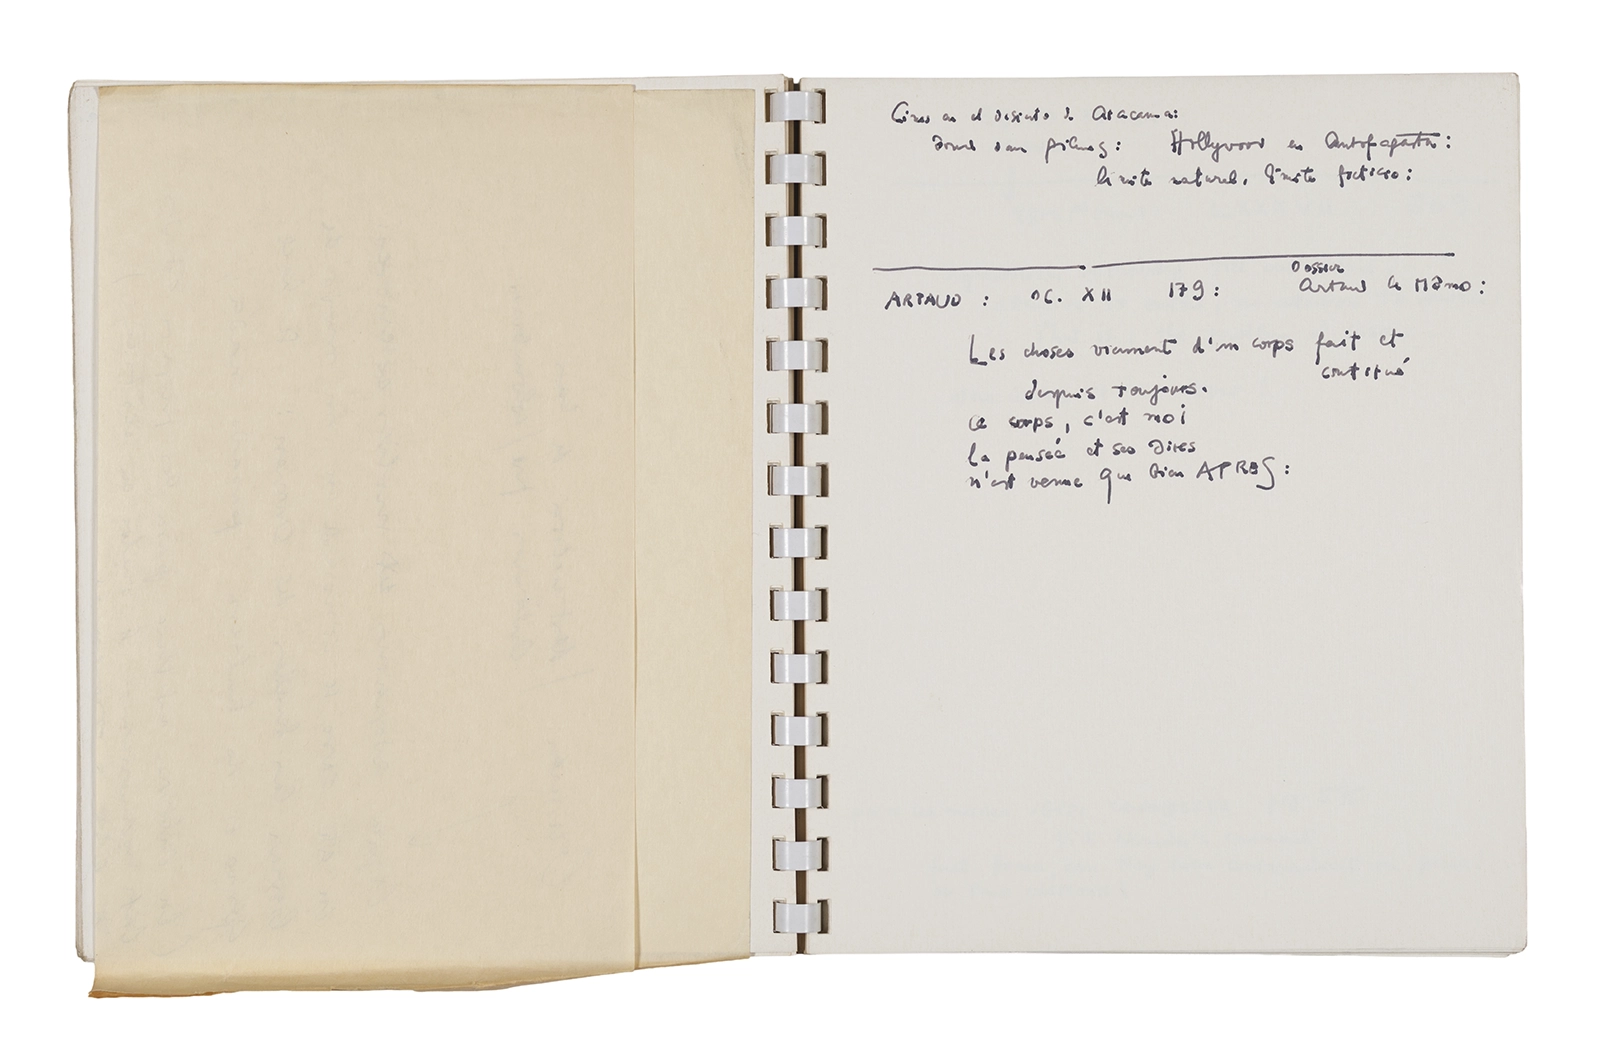 Cines en el desierto de Atacama:
donde dan films: Hollywood en Antofagasta:
límite natural, límite ficticio:
ARTAUD : OC. XII 179 : Dossier
Artaud le Mômo :
Les choses viennent d'un corps fait et
constitué
depuis toujours.
ce corps, c'est moi
la pensée et ses dires
n'est venue que bien APRES :